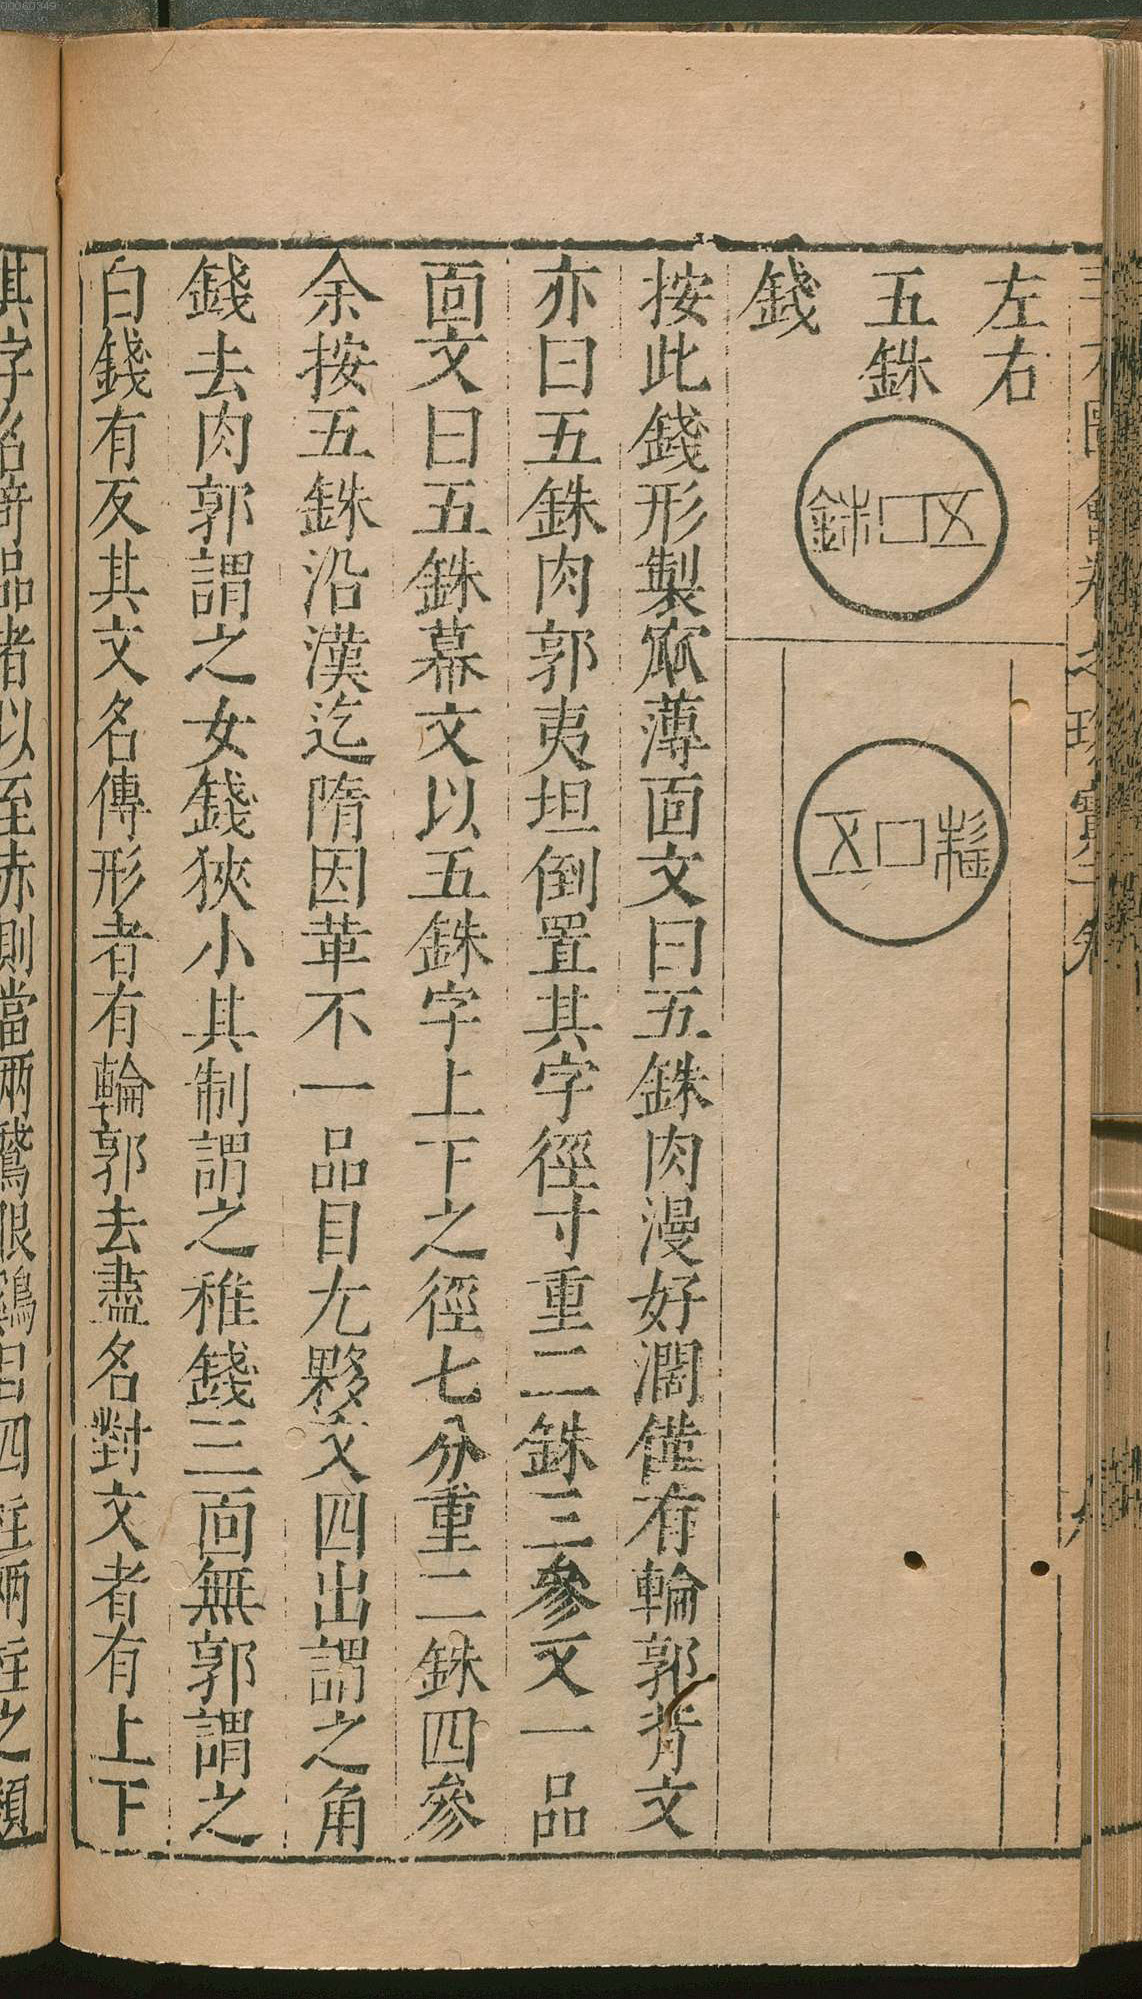 00060349
左右
五銖
錢
五銖
五銖
按此錢形製㝡薄面文曰五銖肉漫好濶僅有輪郭背文
亦曰五銖肉郭夷坦倒置其字徑寸重二銖三參又一品
面文曰五銖幕文以五銖字上下之徑七分重二銖四參
余按五銖沿漢迄隋因革不一品目尢夥文四出謂之角
錢去肉郭謂之女錢狹小其制謂之稚錢三面無郭謂之
白錢有反其文名傳形者有輪郭去盡名對文者有上下